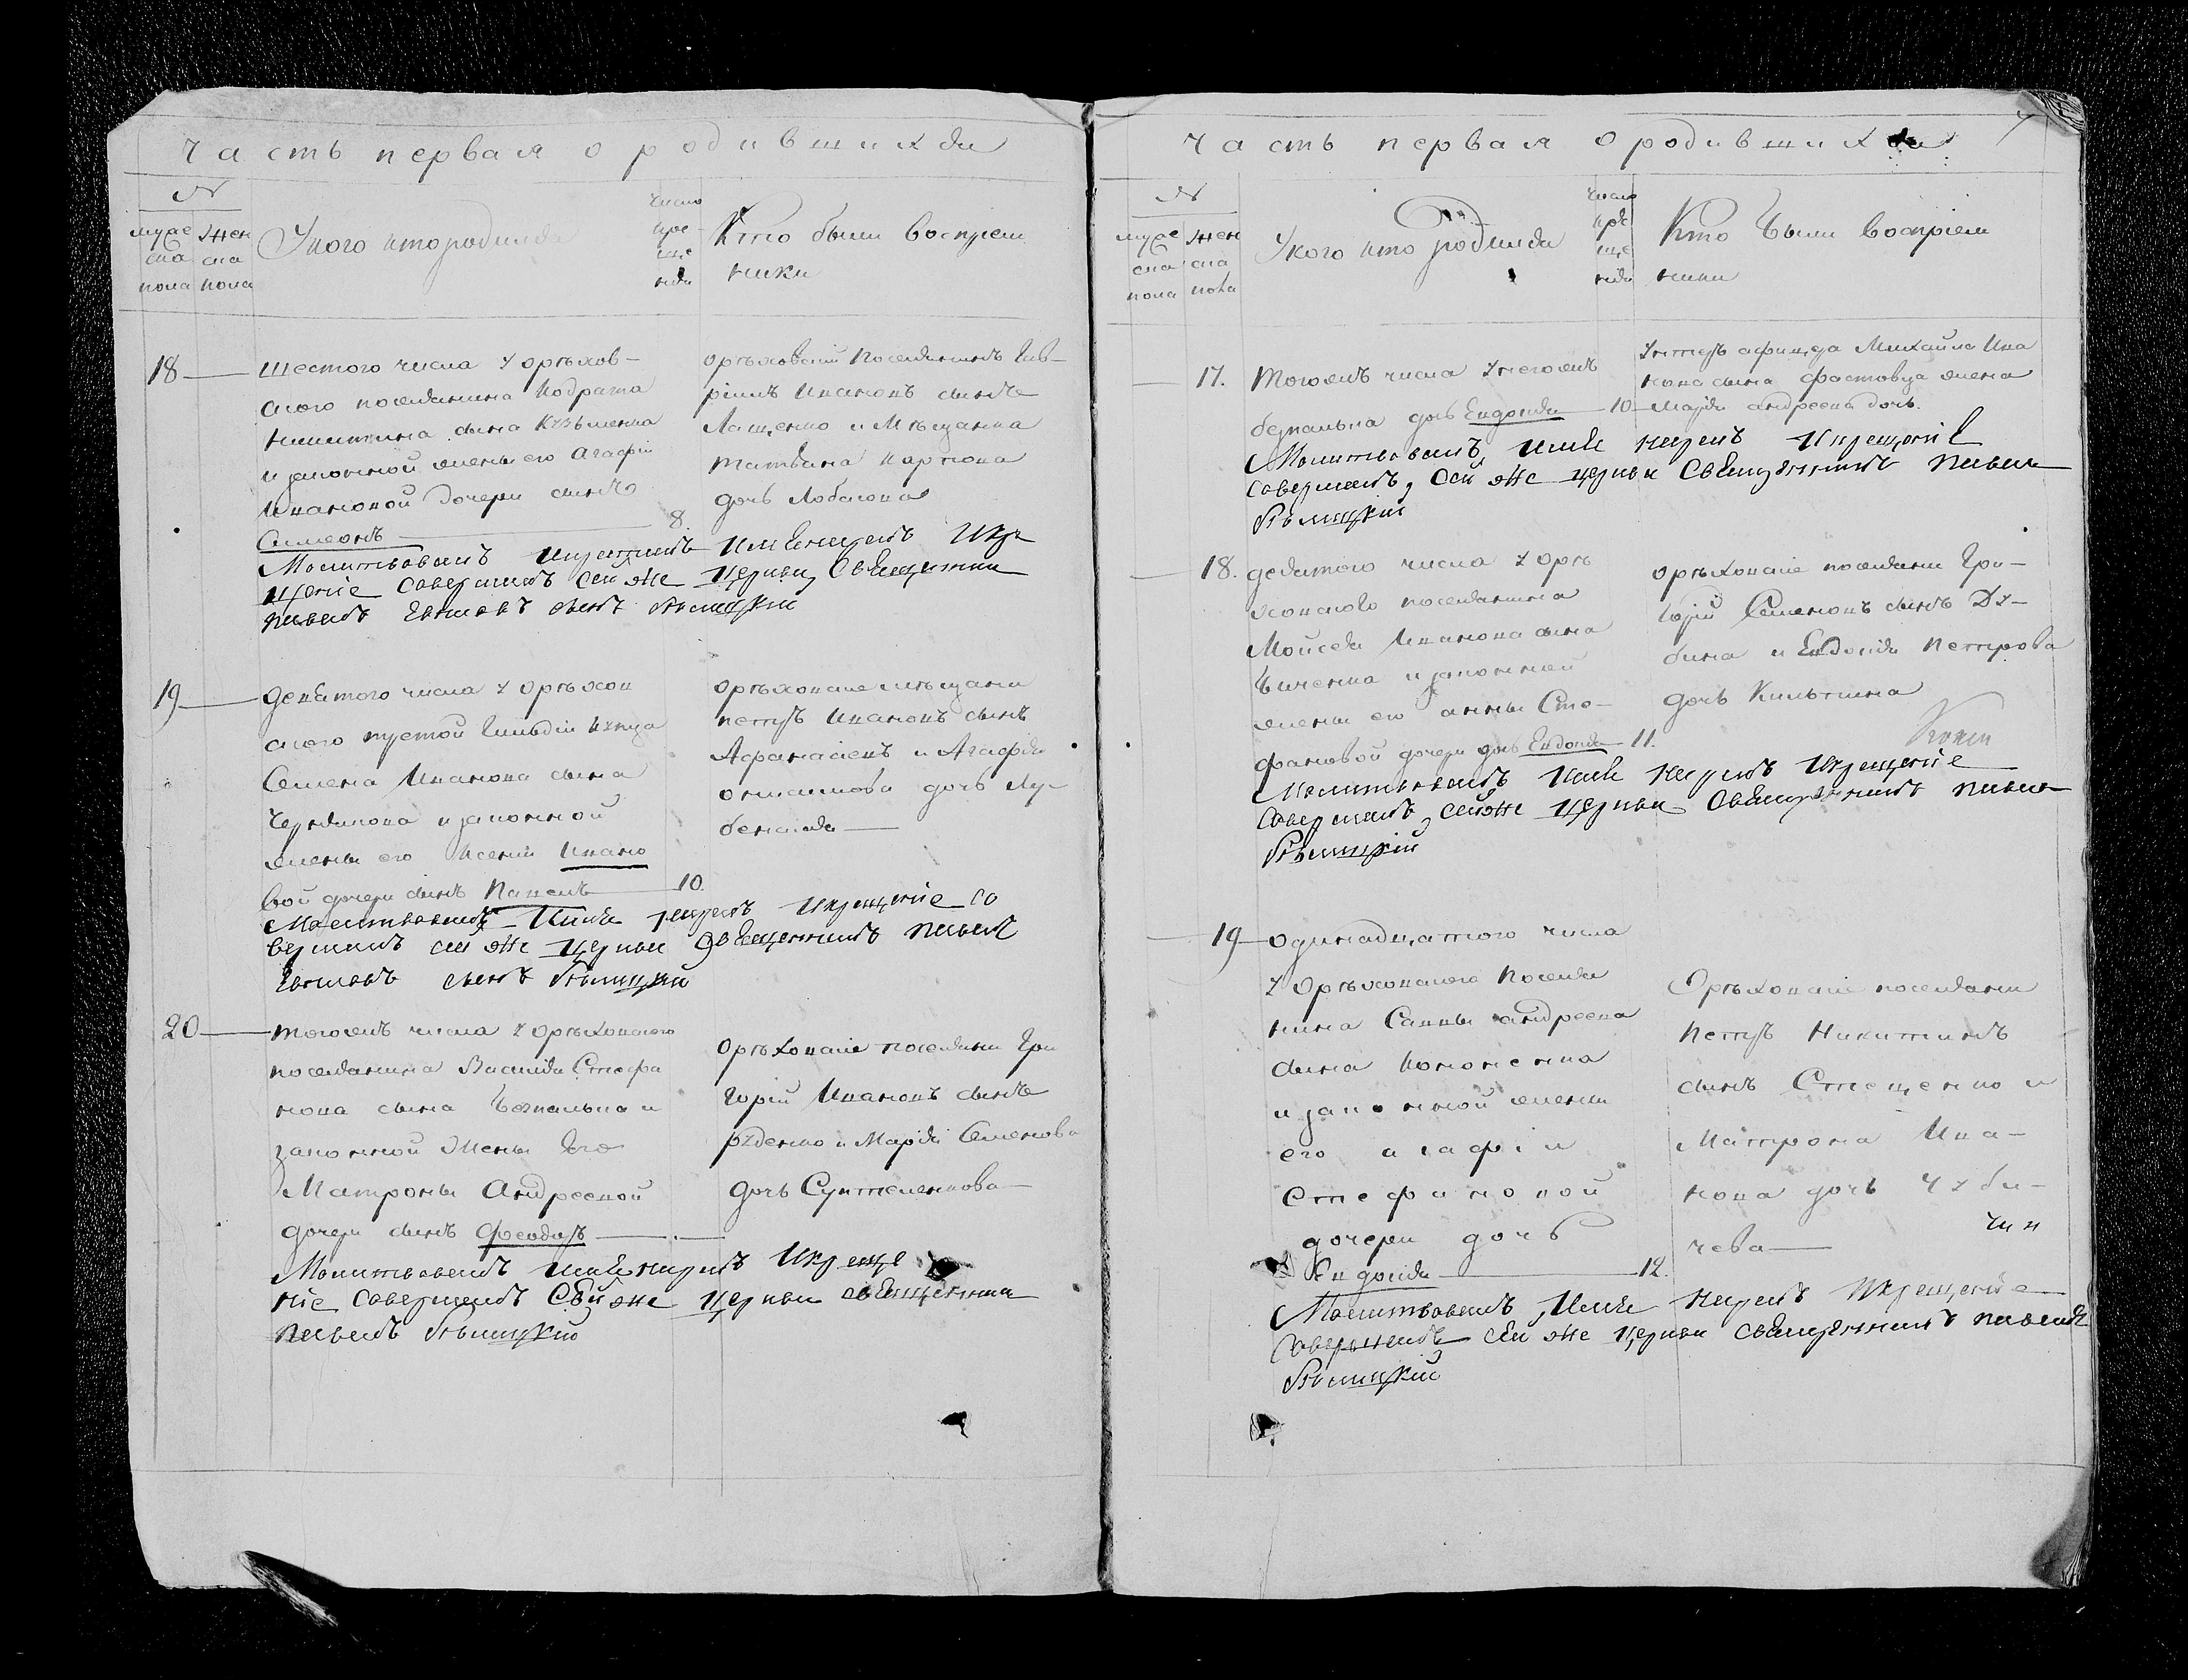 Часть первая о родившихся
№
муже
ска
пола
жен
ска
пола
У кого кто родился
число
кре
ще
нія
Кто были воспріем
ники
18
шестого числа у орѣхов-
ского поселянина Кодрата
Никитина сына Кузменка
и законной жены его Агафіи
Ивановой дочери сынъ
Симеонъ 8.
орѣховскій поселянинъ Гав-
ріилъ Ивановъ сынъ
Лащенко и Мѣщанка
татьяна Карпова
дочь
Молитвовалъ и крещеніе совершилъ сей же церкви Священникъ
павелъ сынъ
19
девятого числа у орѣхов
ского третой гильдіи купца
Семена Иванова сына
и законной
жены его Ксеніи Ивано
вой дочери сынъ Павелъ 10.
орѣховскіе мѣщани
петръ Ивановъ сынъ
Афанасіевъ и Агафія
дочь
Молитвовалъ Имя нарекъ И крещеніе со
вершилъ сей же церкви Священникъ павелъ
сынъ
20
тогожъ числа у орѣховского
поселянина Василія Стефа
нова сына Безпалька и
законной Жены Его
Матроны Андреевой
дочери сынъ Феодоръ
орѣховскіе поселяни Гри
горій Ивановъ сынъ
Руденко и Марія Семенова
дочь
Молитвовалъ имя нарекъ И креще
ніе Совершилъ Сей же церкви священникъ
павелъ
Часть первая о родившихся
7
№
муже
ска
пола
жен
ска
пола
У кого кто родился
число
кре
ще
нія
Кто были воспріем
ники
17.
тогожъ числа у негожъ
безпалька дочь Евдокія 10
Михайла Ива
нова сына Фастовца жена
Марія андреева дочь.
Молитвовалъ, имя нарекъ И крещеніе
совершилъ, Сей же церкви Священникъ павелъ
18.
девятого числа у орѣ
ховского поселянина
Мойсея Иванова сына
и законной
жены его анны Сте-
фановой дочери дочь Евдокія 11.
орѣховскіе поселяни Гри-
горій Семеновъ сынъ Ду-
бина и Евдокія петрова
дочь
Молитвовалъ Имя нарекъ И крещеніе
совершилъ, сей же церкви Священникъ павелъ
19
одинадцатого числа
у Орѣховского поселя
нина Саввы андреева
сына Кононенка
и законной жены
его агафіи
Стефановой
дочери дочь
Евдокія 12.
Орѣховскіе поселяни
петръ Никитинъ
сынъ Стещенко и
Матрона Ива-
нова дочь Чуби-
чева
Молитвовалъ, Имя нарекъ И крещеніе
совершилъ сей же церкви священникъ павелъ